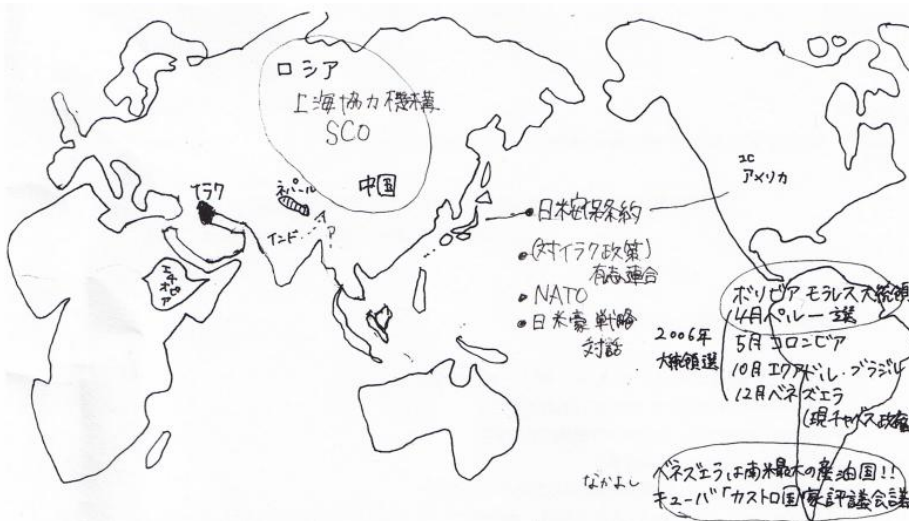 ロシア
上海協力機構
SCO
中国
イラク
ネパール
インド
エチオピア
アメリカ
・日米安保条約
・(対イラク政策)
有志連合
・NATO
・日米豪戦略
対話
2006年
大統領選
ボリビア モラレス大統領
4月ペルー選
5月コロンビア
10月エクアドル・ブラジル
12月ベネズエラ
(現チャベス政権
なかよし
ベネズエラは南米最大の産油国!!
キューバ「カストロ国家評議会議